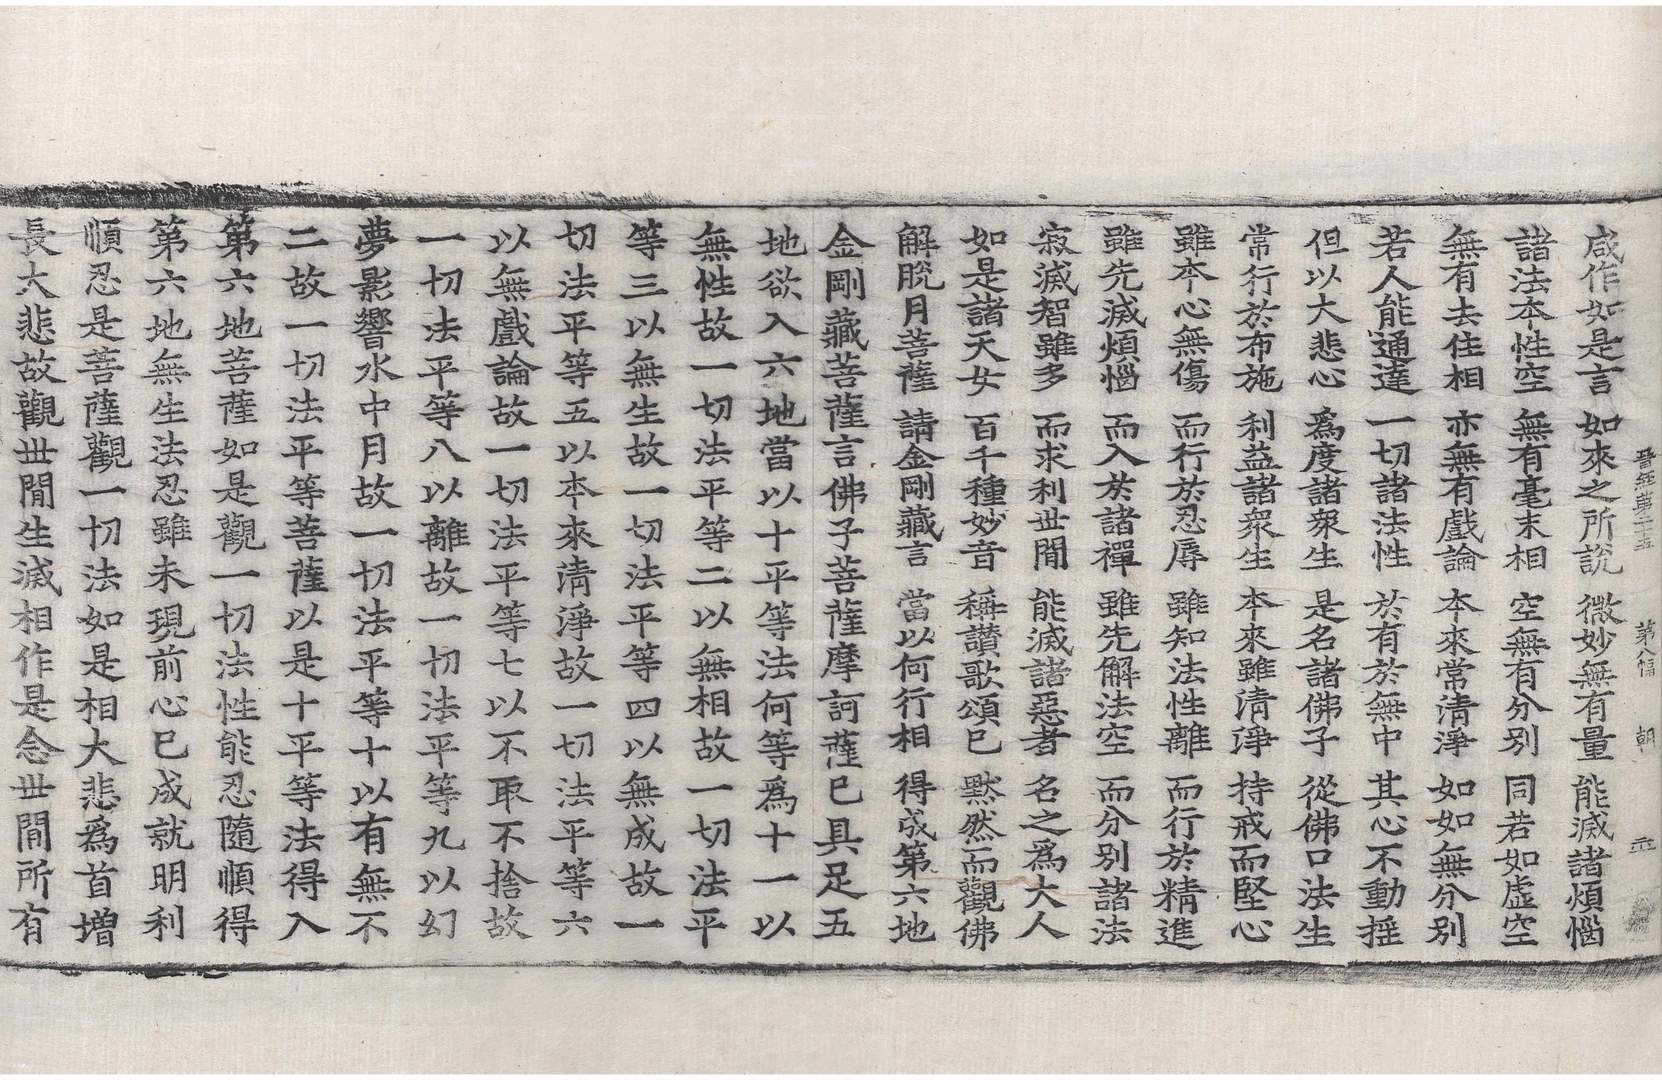 晉經第二十五 第八幅 朝
咸作如是言 如來之所說 微妙無有量 能滅諸煩惱
諸法本性空 無有毫末相 空無有分別 同若如虛空
無有去住相 亦無有戲論 本來常清淨 如如無分別
若人能通達 一切諸法性 於有於無中 其心不動搖
但以大悲心 爲度諸衆生 是名諸佛子 從佛口法生
常行於布施 利益諸衆生 本來雖清淨 持戒而堅心
雖本心無傷 而行於忍辱 雖知法性離 而行於精進
雖先滅煩惱 而入於諸禪 雖先解法空 而分別諸法
寂滅智雖多 而求利世間 能滅諸惡者 名之爲大人
如是諸天女 百千種妙音 稱讚歌頌已 默然而觀佛
解脫月菩薩 請金剛藏言 當以何行相 得成第六地
金剛藏菩薩言佛子菩薩摩訶薩已具足五
地欲入六地當以十平等法何等爲十一以
無性故一切法平等二以無相故一切法平
等三以無生故一切法平等四以無成故一
切法平等五以本來清淨故一切法平等六
以無戲論故一切法平等七以不取不捨故
一切法平等八以離故一切法平等九以幻
夢影響水中月故一切法平等十以有無不
二故一切法平等菩薩以是十平等法得入
第六地菩薩如是觀一切法性能忍隨順得
第六地無生法忍雖未現前心已成就明利
順忍是菩薩觀一切法如是相大悲爲首增
長大悲故觀世間生滅相作是念世間所有